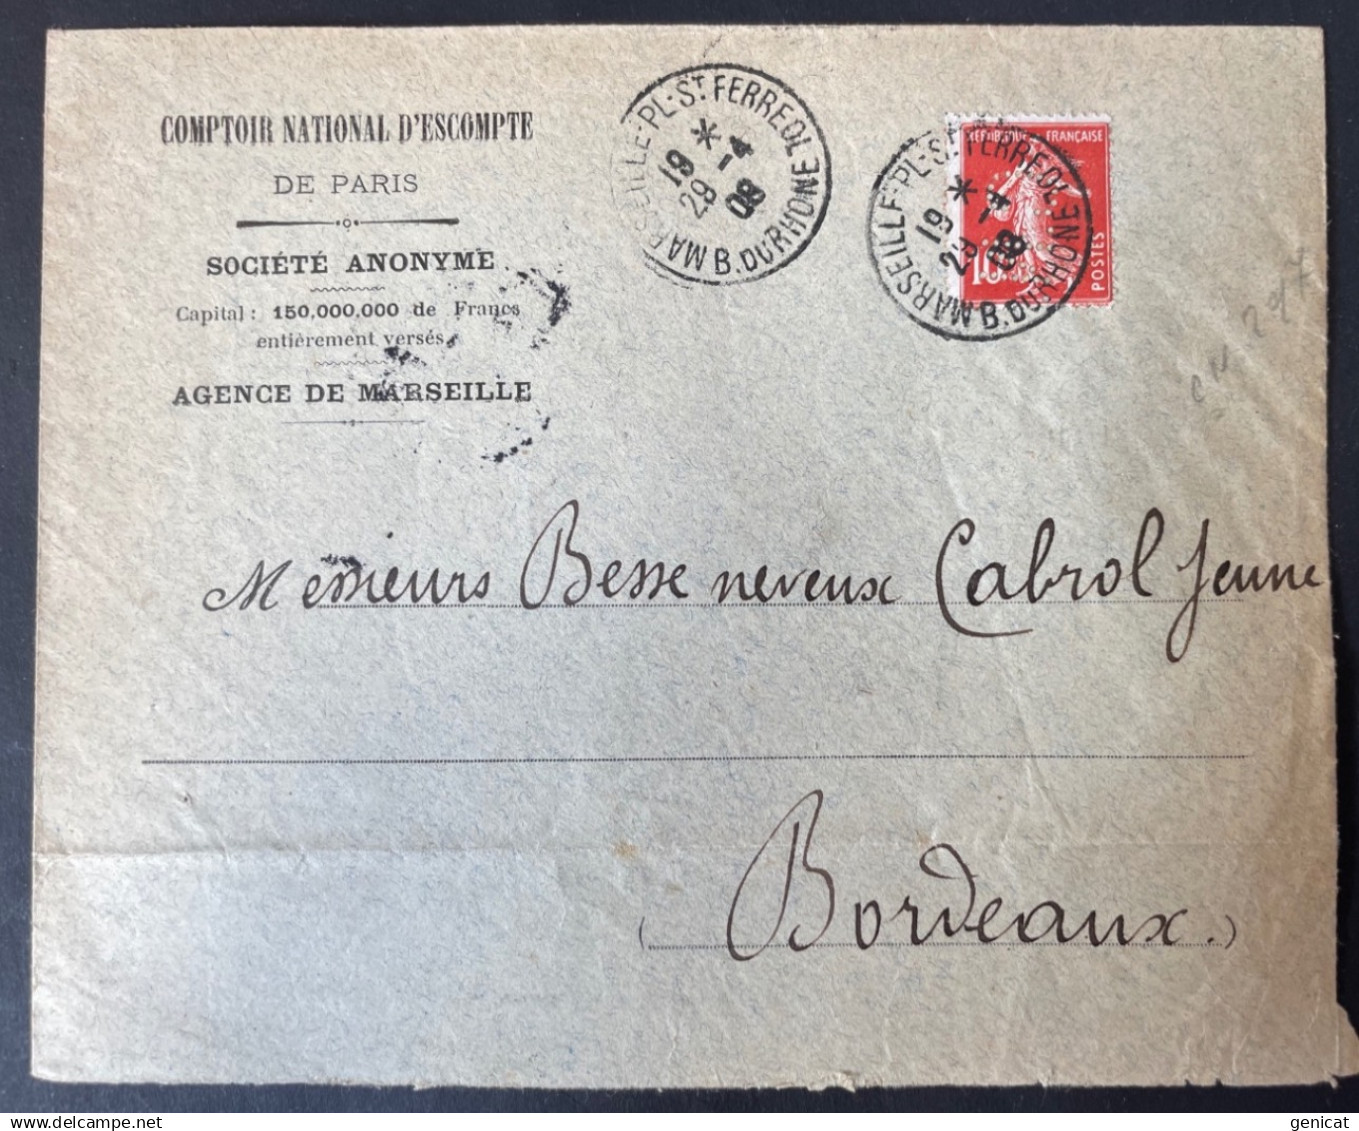 COMPTOIR NATIONAL D'ESCOMPTE
DE PARIS
SOCIÉTÉ ANONYME
Capital : 150.000.000 de Francs
entièrement versés
AGENCE DE MARSEILLE
MARSEILLE-PL-ST FERREOL
19 *
29 -4
08
B. DU RHONE
MARSEILLE-PL-ST FERREOL
19 *
29 -4
08
B. DU RHONE
REPUBLIQUE FRANÇAISE
10
POSTES
Messieurs Besse neveux Cabrol Jeune
(Bordeaux.)
delcampe.net
genicat